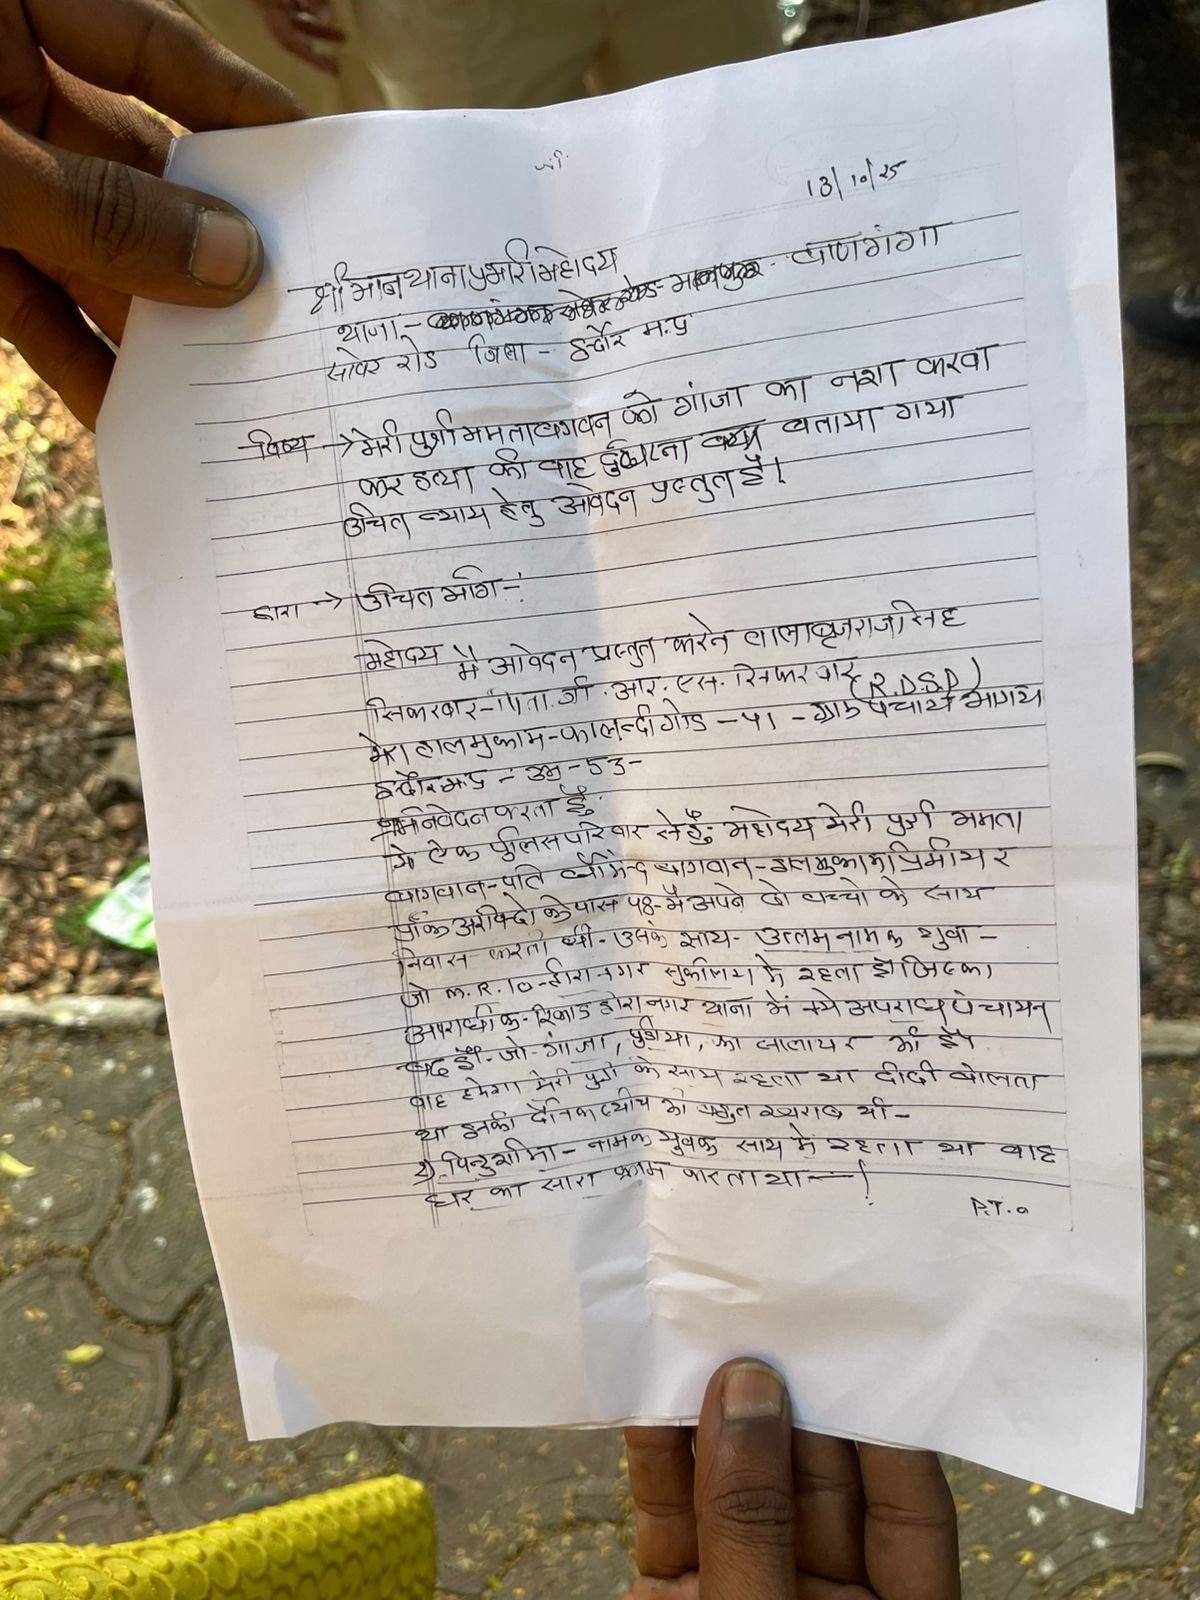 श्री
13/10/25
श्रीमान थाना प्रभारी महोदय
थाना - बाणगंगा
सांवेर रोड जिला - इन्दौर म.प्र
विषय → मेरी पुत्री ममता बागवान को गांजा का नशा करवा
कर हत्या की वाह दुर्घटना बताया गया
उचित न्याय हेतु आवेदन प्रस्तुत है।
द्वारा → उचित मार्ग -:
महोदय मै आवेदन प्रस्तुत करने वाला बृजराजसिंह
सिकरवार - पिता. श्री. आर. एस. सिकरवार (R.D.S.P)
मेरा हाल मुकाम - कालन्दी गोल्ड - 51 - ग्राम पंचायत
इन्दौर म.प्र - उम्र - 53 -
निवेदन करता हूँ.
मे ऐक पुलिस परिवार से हूँ. महोदय मेरी पुत्री ममता
बागवान - पति बागवान - हाल मुकाम प्रिमीयर
पार्क अरविन्दो के पास 98 - मै अपने दो बच्चो के साथ
निवास करती थी - उसके साथ - उत्तम नामक युवा -
जो M.R. 10 - हीरा नगर मे रहता है जिसका
अपराधीक - रिकार्ड हीरा नगर थाना में अपराध पंचायन
बद है - जो - गांजा, पुड़ीया, का भी है
वाह हमेशा मेरी पुत्री के साथ रहता था दीदी बोलता
था इनकी दैनिक स्थीच भी बहुत खराब थी -
2) पिन्टु शर्मा - नामक युवक साथ मे रहता था वाह
घर का सारा काम करता था - !
P.T.O